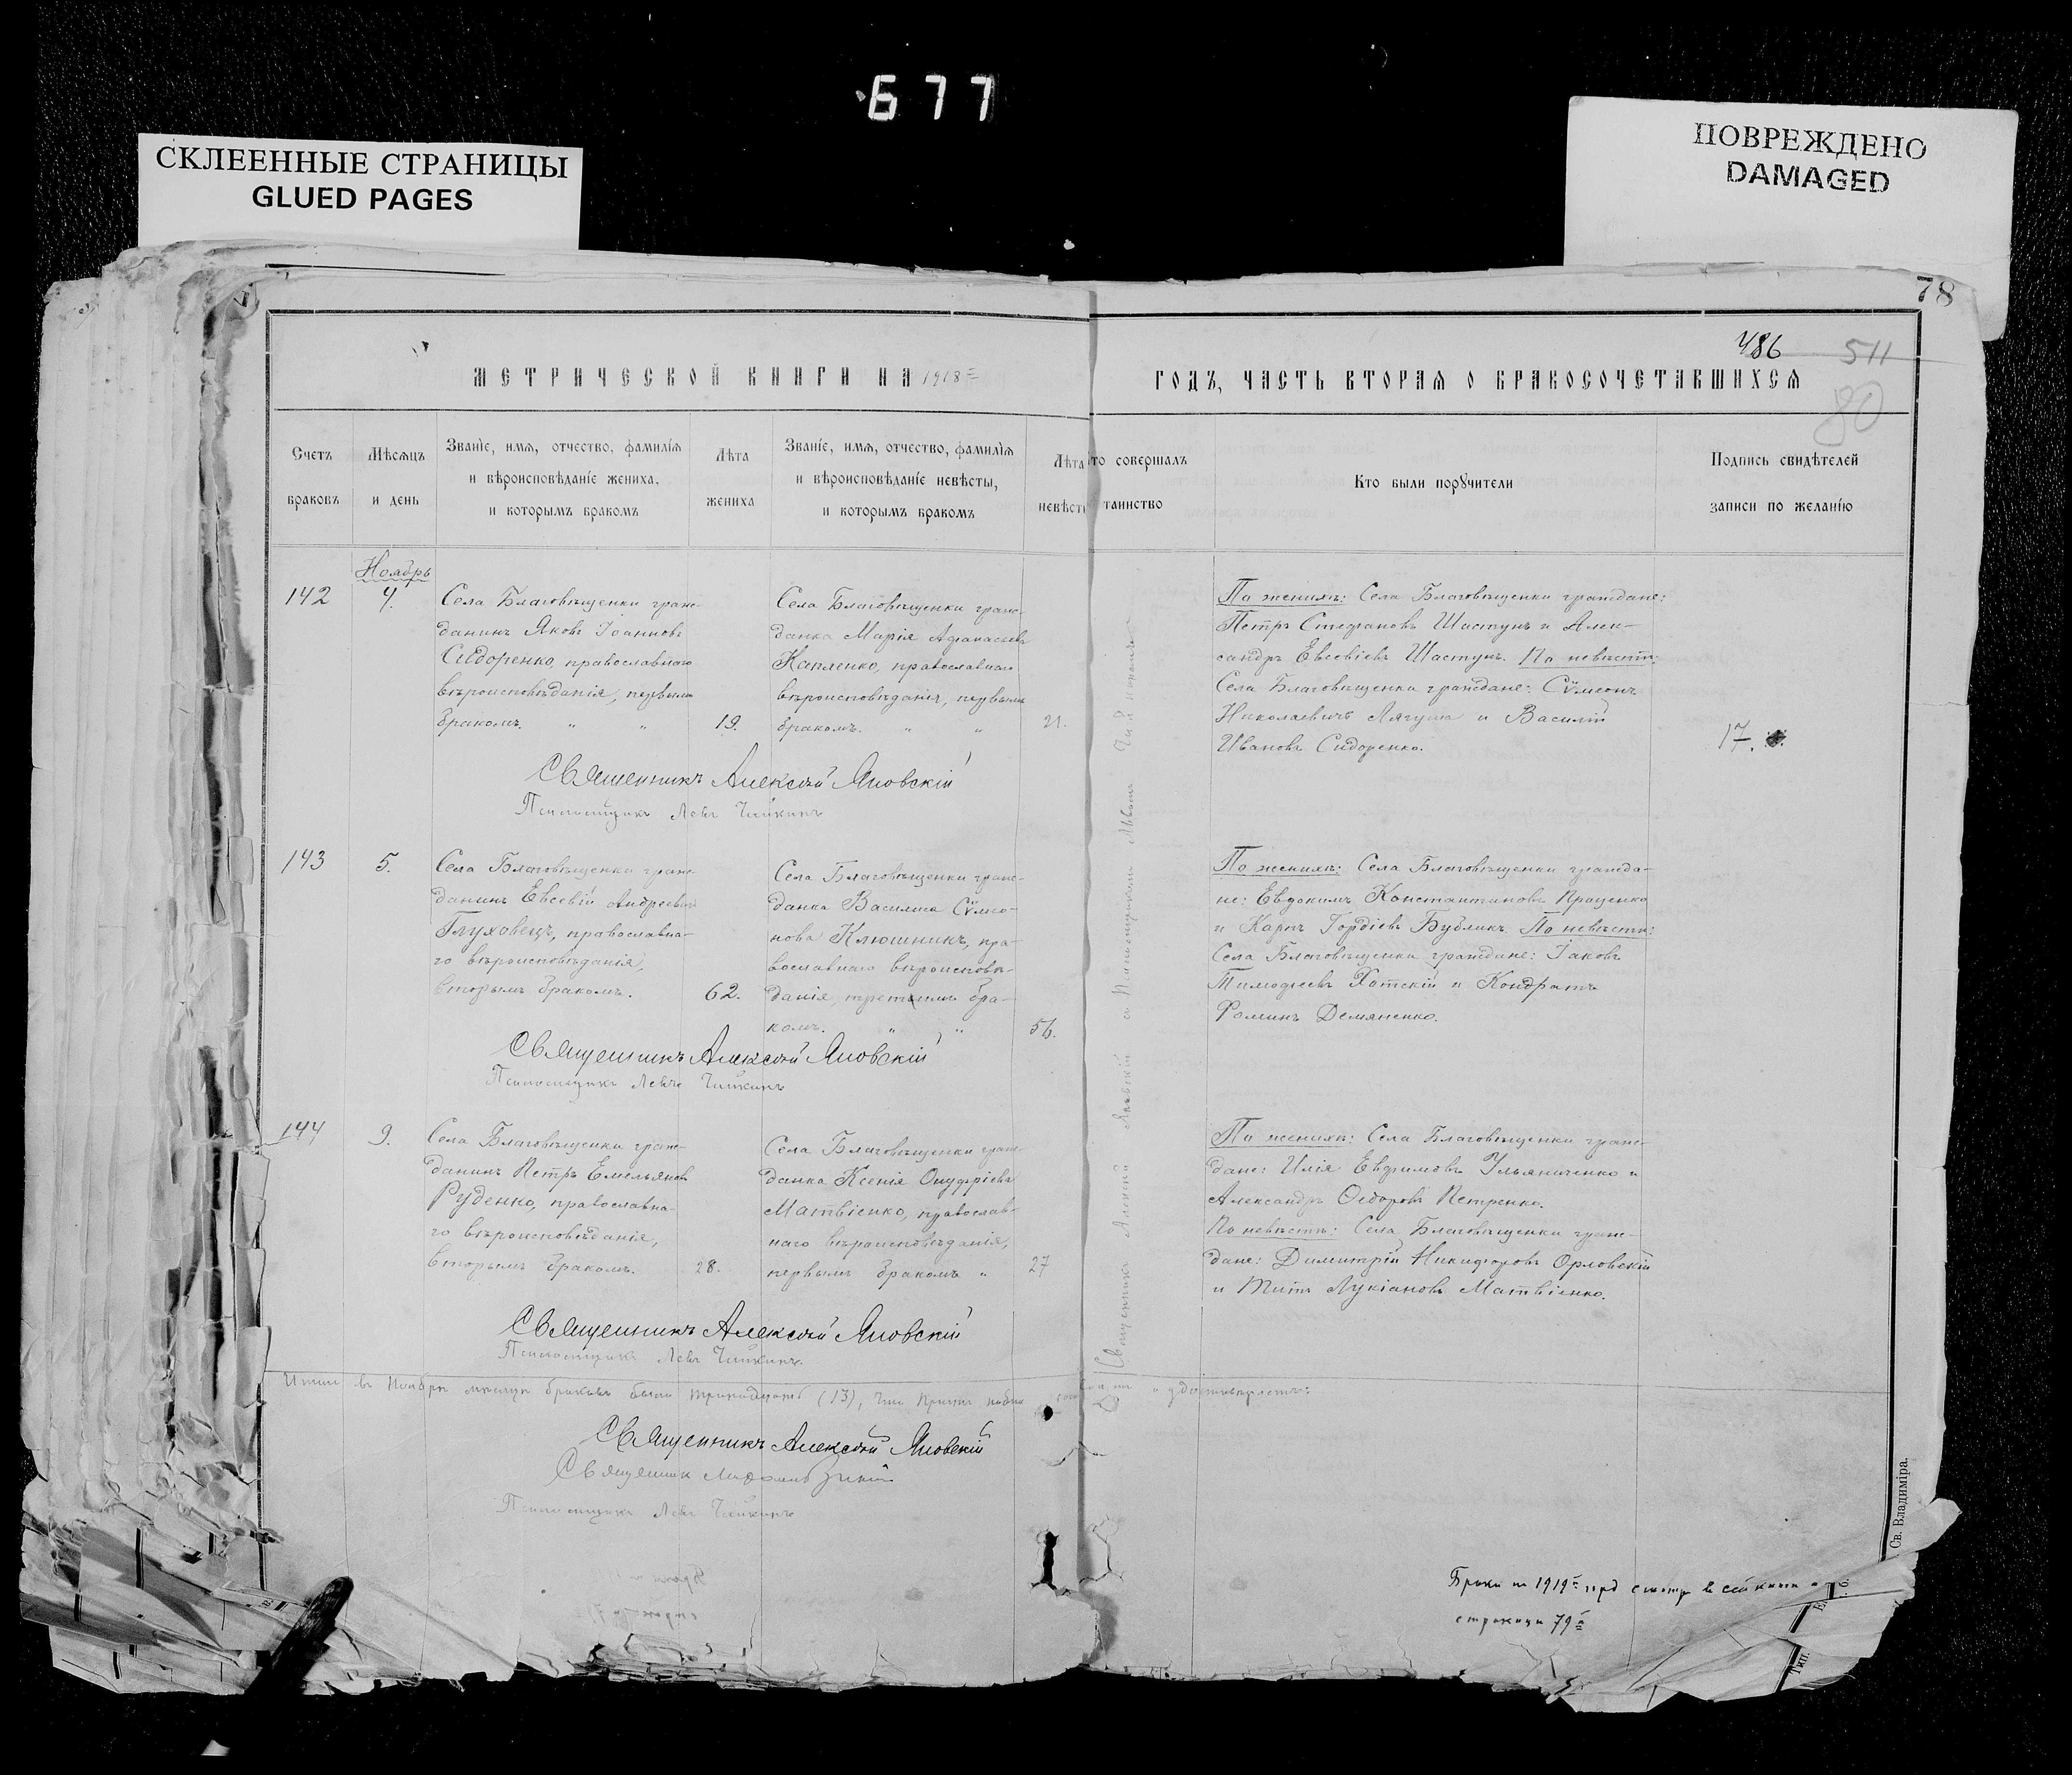 677
СКЛЕЕННЫЕ СТРАНИЦЫ
GLUED PAGES
ПОВРЕЖДЕНО
DAMAGED
78
486
511
80
МЕТРИЧЕСКОЙ КНИГИ НА 1918 ГОДЪ, ЧАСТЬ ВТОРАЯ О БРАКОСОЧЕТАВШИХСЯ
Счетъ
браковъ
Мѣсяцъ
и день
Званіе, имя, отчество, фамилія
и вѣроисповѣданіе жениха,
и которымъ бракомъ
Лѣта
жениха
Званіе, имя, отчество, фамилія
и вѣроисповѣданіе невѣсты,
и которымъ бракомъ
Лѣта
невѣст
то совершалъ
таинство
Кто были поручители
Подпись свидѣтелей
записи по желанію
Ноябрь
142
4.
Села Благовѣщенки граж-
данинъ Яковъ Іоанновъ
Сидоренко, православнаго
вѣроисповѣданія, первымъ
бракомъ. " "
19.
Села Благовѣщенки граж-
данка Марія Афанасіева
Капленко, православнаго
вѣроисповѣданія, первымъ
бракомъ. " "
21.
По женихѣ: Села Благовѣщенки граждане:
Петръ Стефановъ Шастунъ и Алек-
сандръ Евсевіевъ Шастунъ. По невѣстѣ:
Села Благовѣщенки граждане: Сѵмеонъ
Николаевичъ Лягуша и Василій
Ивановъ Сидоренко.
17.
Священникъ Алексѣй Яновскій
Псаломщикъ Левъ Чайкинъ
143
5.
Села Благовѣщенки граж-
данинъ Евсевій Андреевъ
Глуховецъ, православна-
го вѣроисповѣданія,
вторымъ бракомъ.
62.
Села Благовѣщенки граж-
данка Василиса Сѵмео-
нова Клюшникъ, пра-
вославнаго вѣроисповѣ-
данія, третьимъ бра-
комъ. " "
56.
По женихѣ: Села Благовѣщенки гражда-
не: Евдокимъ Константиновъ Проценко
и Карпъ Гордіевъ Бубликъ. По невѣстѣ:
Села Благовѣщенки граждане: Іаковъ
Тимофеевъ Хотскій и Кондратъ
Фоминъ Демяненко.
Священникъ Алексѣй Яновскій
Псаломщикъ Левъ Чайкинъ
144
9.
Села Благовѣщенки граж-
данинъ Петръ Емельяновъ
Руденко, православна-
го вѣроисповѣданія,
вторымъ бракомъ.
28.
Села Благовѣщенки граж-
данка Ксенія Онуфріева
Матвіенко, православ-
наго вѣроисповѣданія,
первымъ бракомъ "
27
По женихѣ: Села Благовѣщенки граж-
дане: Илія Евфимовъ Ульяниченко и
Александръ Ѳедоровъ Петренко.
По невѣстѣ: Села Благовѣщенки граж-
дане: Димитрій Никифоровъ Орловскій
и Титъ Лукіановъ Матвіенко.
Священникъ Алексѣй Яновскій
Псаломщикъ Левъ Чайкинъ.
Священникъ Алексій Яновскій съ Псаломщикомъ Львомъ Чайкинымъ
Итого въ Ноябрѣ мѣсяцѣ браковъ было тринадцать (13), что
Священникъ Алексѣй Яновскій
Священник
Псаломщикъ Левъ Чайкинъ
Браки за 1919 год смотр в сей книге
страницы 79
Св. Владиміра.
Тип.